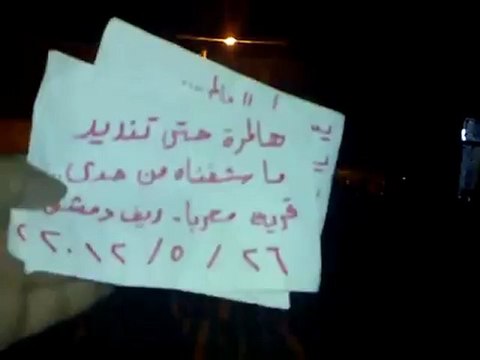 عالم ....
هالمرة حتى تنديد
ما شفناه من حدى..
قرية معربا. ريف دمشق
٢٦ / ٥ / ٢٠١٢